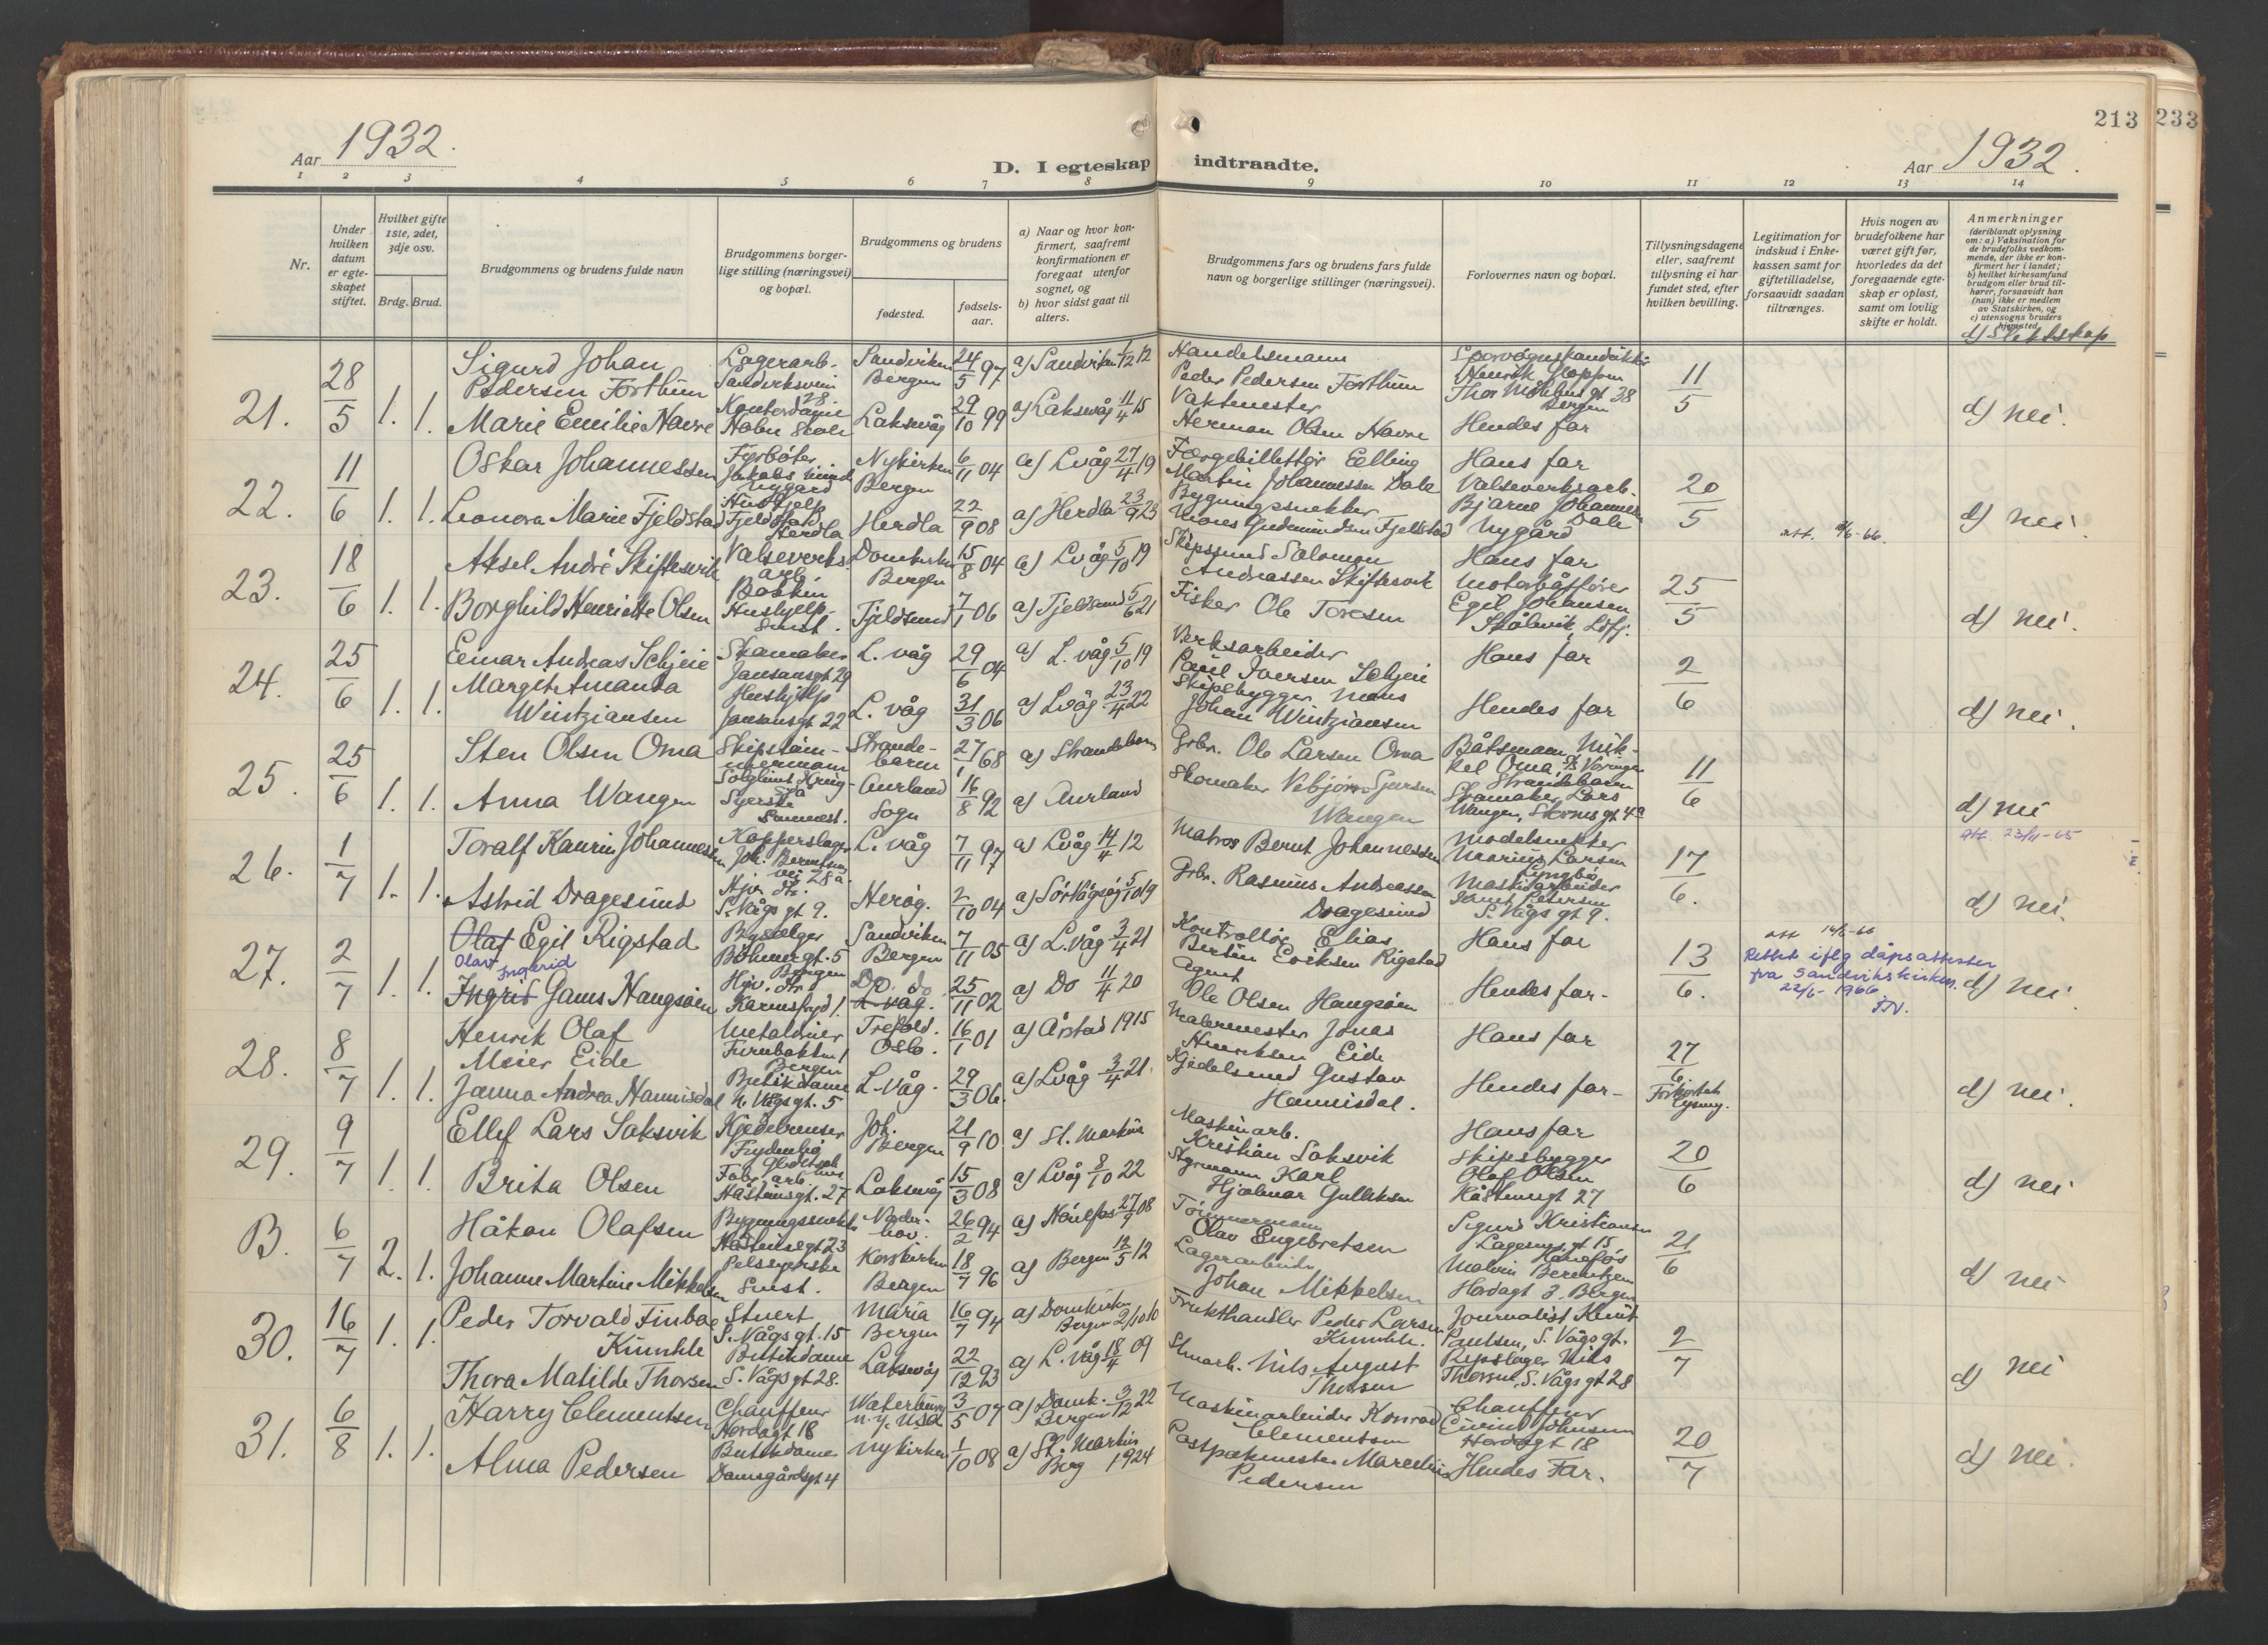 213
233
Aar 1932.
D. I egteskap indtraadte.
Aar 1932.
1 2 3 4 5 6 7 8 9 10 11 12 13 14
Nr.
Under hvilken datum er egteskapet stiftet.
Hvilket gifte 1ste, 2det, 3dje osv.
Brdg. Brud.
Brudgommens og brudens fulde navn
Brudgommens borgerlige stilling (næringsvei) og bopæl.
Brudgommens og brudens
fødested.
fødselsaar.
a) Naar og hvor konfirmert, saafremt konfirmationen er foregaat utenfor sognet, og
b) hvor sidst gaat til alters.
Brudgommens fars og brudens fars fulde navn og borgerlige stillinger (næringsvei).
Forlovernes navn og bopæl.
Tillysningsdagene eller, saafremt tillysning ei har fundet sted, efter hvilken bevilling.
Legitimation for indskud i Enkekassen samt for giftetilladelse, forsaavidt saadan tiltrænges.
Hvis nogen av brudefolkene har været gift før, hvorledes da det foregaaende egteskap er opløst, samt om lovlig skifte er holdt.
Anmerkninger (deriblandt oplysning om: a) Vaksination for de brudefolks vedkommende, der ikke er konfirmert her i landet; b) hvilket kirkesamfund brudgom eller brud tilhører, forsaavidt han (hun) ikke er medlem av Statskirken, og c) utensogns bruders hjemsted.
d) Slektskap
21. 28/5 1. 1.
Sigurd Johan
Pedersen Forthun
Lagerarb.
Sandviksvein 28.
Sandviken Bergen 24/5 97
a) Sandviken 1/12 12
Handelsmann
Peder Pedersen Forthun
Henrik Gloppen
Thor Möhlens gt 38
Bergen
11/5
Marie Emilie Navre
Kontordame
Laksevåg 29/10 99
a) Laksevåg 11/4 15
Vaktmester
Herman Olsen Navre
Hendes far
d) nei.
22. 11/6 1. 1.
Oskar Johannessen
Fyrbøter
Nygård
Nykirken Bergen 6/11 04
a) Lvåg 27/4 19
Færgebillettør Elling
Martin Johannessen Dale
Hans far
20/5
Leonora Marie Fjeldstad
Hushjelp
Fjeldstad Herdla
Herdla 22/9 08
a) Herdla 23/9 23
Bygningssnekker
Mons Gudmundsen Fjellstad
Valseverksarb.
Bjarne Johannessen
Dale
Nygård
d) nei.
23. 18/6 1. 1.
Aksel André Skiftesvik
Valseverksarb.
Domkirken Bergen 15/8 04
a) Lvåg 5/10 19
Salomon
Andreassen Skiftesvik
Hans far
25/5
Borghild Henriette Olsen
Hushjelp
Fjeldsund 7/1 06
a) Fjeldsund 5/6 21
Fisker Ole Toresen
Motorbåtfører
Egil Johansen
d) nei.
24. 25/6 1. 1.
Einar Andreas Schjeie
Skomaker
Jansonsgt 29
L. våg 29/6 04
a) L. våg 5/10 19
Verksarbeider
Paul Iversen Schjeie
Hans far
2/6
Margit Amanda
Wintziansen
Hushjelp
Jansonsgt 22
L. våg 31/3 06
a) Lvåg 23/4 22
Skipsbygger Mons
Johan Wintziansen
Hendes far
d) nei.
25. 25/6 1. 1.
Sten Olsen Oma
Skipstømmermann
Strandebarm 27/1 68
a) Strandebarm
Grbr. Ole Larsen Oma
Båtsmann Mikkel Oma
Strandebarm
11/6
Anna Wangen
Syerske
Aurland Sogn 16/8 92
a) Aurland
Skomaker
Wangen
Skomaker Lars
Wangen
d) nei
att. 23/11-65
26. 1/7 1. 1.
Toralf Kaurin Johannessen
Kopperslager
Joh. Berntsens vei 28a.
L. våg 7/11 97
a) Lvåg 14/4 12
Matros Bernt Johannessen
Modelsnekker
Marius Larsen
Lyngbø
17/6.
Astrid Dragesund
Hjv. dtr.
S. Vågs gt 9.
Herøy. 2/10 04
a) Sör Vågsøy 5/10 19
Grbr. Rasmus Andreassen
Dragesund
Maskinarbeider
Petersen
S. Vågs gt 9.
d) nei.
27. 2/7 1. 1.
Olaf Egil Rigstad
Olav
Ingerid
Bergen
Sandviken Bergen 7/11 05
a) L. våg 3/4 21
Kontrollør Elias
Bertin Eriksen Rigstad
Hans far
13/6.
Ingrid Gams Haugsøen
Hjv. dtr
Do. do 25/11 02
a) Do 11/4 20
Agent
Ole Olsen Haugsøen
Hendes far.
att 14/6-66
Rettet iflg dåpsattester
fra Sandvikskirken.
22/6-1966
d) nei.
28. 8/7 1. 1.
Henrik Olaf
Meier Eide
Bergen
Trefold. Oslo. 16/1 01
a) Årstad 1915
Malermester Jonas
Henriksen Eide
Hans far
27/6
Forkortet lysning.
Janna Andrea Hannisdal
Butikdame
N. Vågsgt. 5
L. Våg. 29/3 06
a) Lvåg 3/4 21.
Kjedelsmed Gustav
Hannisdal.
Hendes far
d) nei.
29. 9/7 1. 1.
Ellef Lars Saksvik
Kjedelrenser
Frydenbø
Joh. Bergen 21/9 10
a) St. Markus
Maskinarb.
Kristian Saksvik
Hans far
20/6
Brita Olsen
Fabr. arb.
Håsteinsgt. 27
Laksevåg 15/3 08
a) Lvåg 8/10 22
Styrmann Karl
Hjalmar Gulliksen
Skipsbygger
Olaf Olsen
Håsteinsgt 27
d) nei
B. 6/7 2. 1.
Håkon Olafsen
Bygningssnekker
Håsteinsgt 23
Norderhov. 26/2 94
a) Hönefos 27/9 08
Tömmermann
Olav Engebretsen
Sigurd Kristiansen
Hönefos
21/6
Johanne Martine Mikkelsen
Pelssyerske
Korskirken Bergen 18/7 96
a) Bergen 12/5 12
Lagerarbeider
Johan Mikkelsen
Malvin Berentzen
Hordagt 3. Bergen
d) nei
30. 16/7 1. 1.
Peder Torvald Finboe
Kinnkle
Stuert
S. Vågs gt. 15
Maria Bergen 16/7 94
a) Domkirken
Bergen 2/10 10
Frukthandler Peder Larsen
Journalist Knut
Paulsen, S. Vågs gt.
2/7
Thora Matilde Thorsen
Butikdame
S. Vågs gt 28.
Laksevåg 22/12 93
a) L. Våg 18/4 09
Nils August
Thorsen
Repslager Nils
Thorsen, S. Vågs gt 28
d) nei
31. 6/8 1. 1.
Harry Clementsen
Chauffeur
Hordagt 18
Waterbury
N.Y. USA 3/5 07
a) Domk. Bergen 3/12 22
Maskinarbeider Konrad
Clementsen
Chauffeur
Johnsen
Hordagt 18
20/7
Alma Pedersen
Butikdame
Damsgårdsgt 4
Nykirken 1/10 08
a) St. Markus
Berg 1924
Postpakmester
Pedersen
Hendes Far.
d) nei.